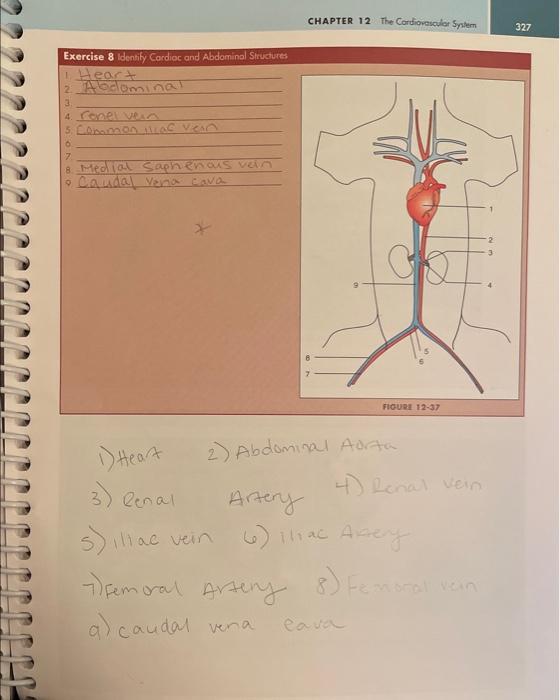 CHAPTER 12 The Cardiovascular System 327
Exercise 8 Identify Cardiac and Abdominal Structures
1. Heart
2. Abdominal
3.
4. renel vein
5. Common iliac vein
6.
7.
8. Medial saphenous vein
9. Caudal vena cava
*
1
2
3
9
4
5
8
6
7
FIGURE 12-37
1) Heart 2) Abdominal Aorta
3) Renal Artery 4) Renal vein
5) iliac vein 6) iliac Artery
7) Femoral Artery 8) Femoral vein
9) caudal vena cava